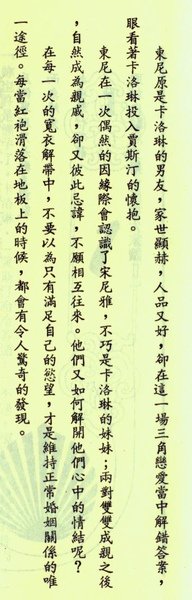 東尼原是卡洛琳的男友，家世顯赫，人品又好，卻在這一場三角戀愛當中解錯答案，
眼看著卡洛琳投入賈斯汀的懷抱。
東尼在一次偶然的因緣際會認識了宋尼雅，不巧是卡洛琳的妹妹；兩對雙雙成親之後
，自然成為親戚，卻又彼此忌諱，不願相互往來。他們又如何解開他們心中的情結呢？
在每一次的寬衣解帶中，不要以為只有滿足自己的慾望，才是維持正常婚姻關係的唯
一途徑。每當紅袍滑落在地板上的時候，都會有令人驚奇的發現。